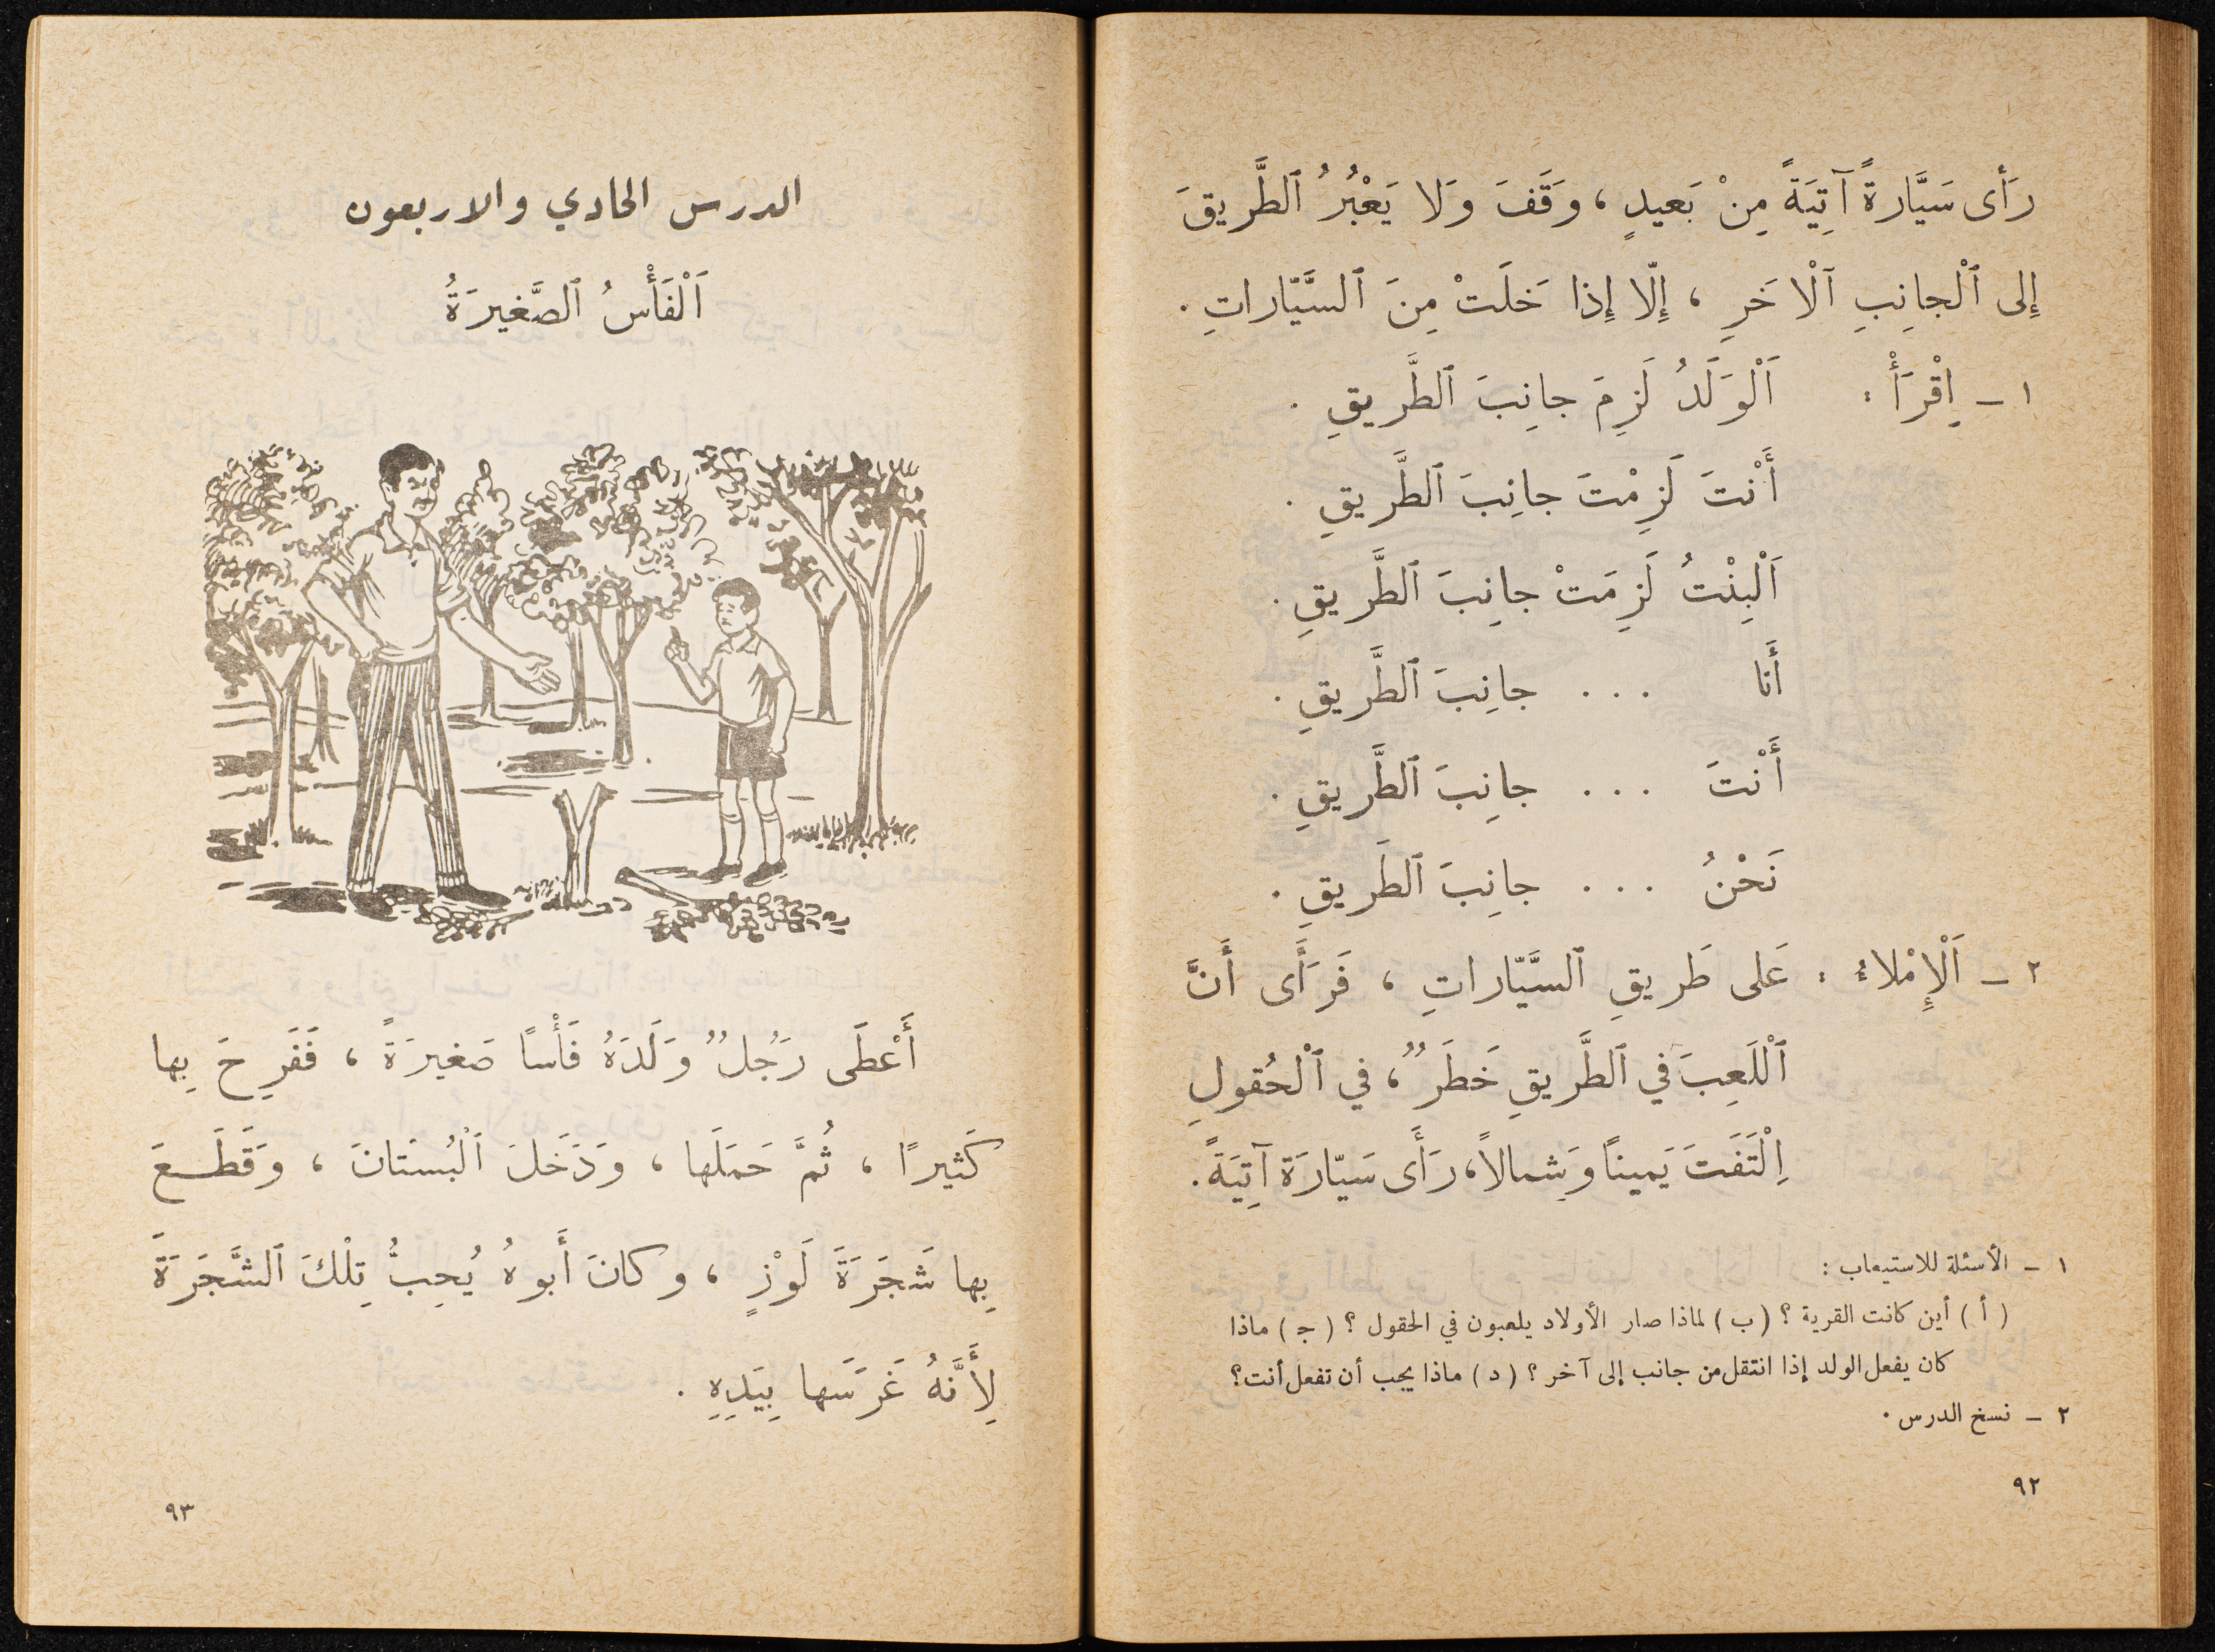 رَأَى سَيَّارةً آتِيَةً مِنْ بَعيدٍ ، وَقَفَ وَلا يَعْبُرُ ٱلطَّريقَ
إِلى ٱلْجانِبِ ٱلْآخَرِ ، إِلّا إِذا خَلَتْ مِنَ ٱلسَّيّاراتِ .
١ – اِقْرَأْ : اَلْوَلَدُ لَزِمَ جانِبَ ٱلطَّريقِ .
أَنْتَ لَزِمْتَ جانِبَ ٱلطَّريقِ .
اَلْبِنْتُ لَزِمَتْ جانِبَ ٱلطَّريقِ .
أَنا . . . جانِبَ ٱلطَّريقِ .
أَنْتَ . . . جانِبَ ٱلطَّريقِ .
نَحْنُ . . . جانِبَ ٱلطَريقِ .
٢ – اَلْإِمْلاءُ : عَلى طَريقِ ٱلسَّيّاراتِ ، فَرَأَى أَنَّ
ٱلْلَعِبَ في ٱلطَّريقِ خَطَرٌ ، في ٱلْحُقولِ
اِلْتَفَتَ يَميناً وَشِمالاً ، رَأَى سَيّارَة آتِيَةً .
١ – الأسئلة للاستيعاب :
( أ ) أين كانت القرية ؟ ( ب ) لماذا صار الأولاد يلعبون في الحقول ؟ ( جـ ) ماذا
كان يفعل الولد إذا انتقل من جانب إلى آخر ؟ ( د ) ماذا يجب أن تفعل أنت ؟
٢ – نسخ الدرس .
٩٢
الدرس الحادي والاربعون
اَلْفَأْسُ ٱلصَّغيرَةُ
أَعْطَى رَجُلٌ وَلَدَهُ فَأْسًا صَغيرَةً ، فَفَرِحَ بِها
كَثيرًا ، ثُمَّ حَمَلَها ، وَدَخَلَ ٱلْبُسْتانَ ، وَقَطَـعَ
بِها شَجَرَةَ لَوْزٍ ، وكانَ أَبوهُ يُحِبُّ تِلْكَ ٱلشَّجَرَةَ
لِأَنَّهُ غَرَسَها بِيَدِهِ .
٩٣